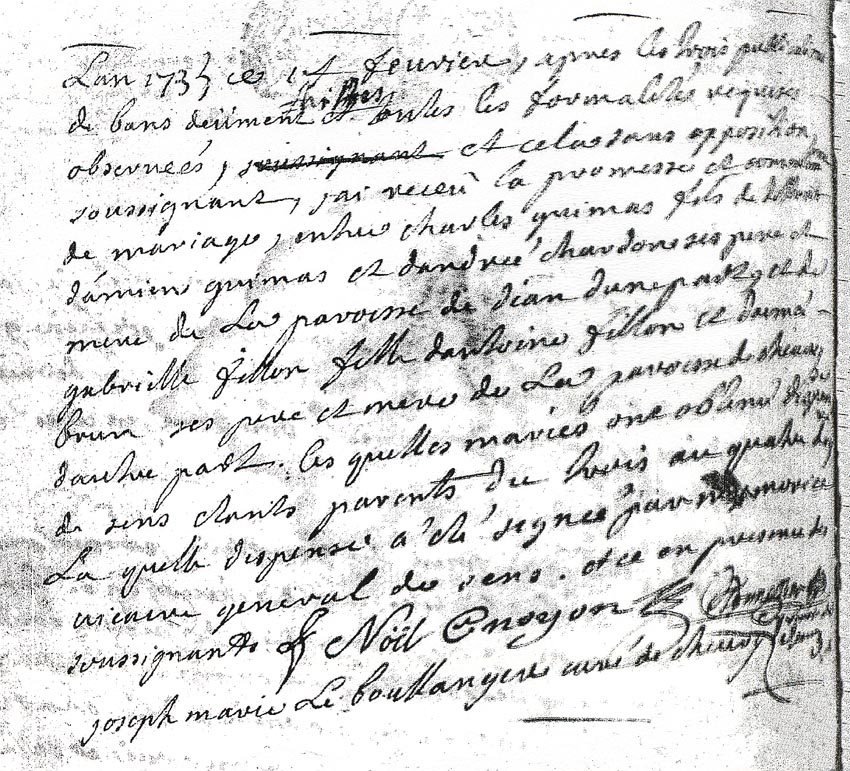 Lan 1733 ce 14 feuvrier, apres les trois publications
de bans deüiment faittes et toutes les formalités requises
observeés, soussignant et cela sans opposition,
soussignant, jai receü la promesse et
de mariage, entre charles guimas fils de deffunt
damien guimas et dandreé chardon ses pere et
mere de La paroisse de dian dune part, et de
gabrielle fillon fille dantoine fillon et
brun ses pere et mere de La paroisse de
dautre part. les quelles mariés ont obtenu dispense
de sens étants parents du trois au quatre
La quelle dispense a été signeé par
vicaire general de sens. et ce en presence des
soussignants Noël Croyon
joseph marie Le boullanger curé de